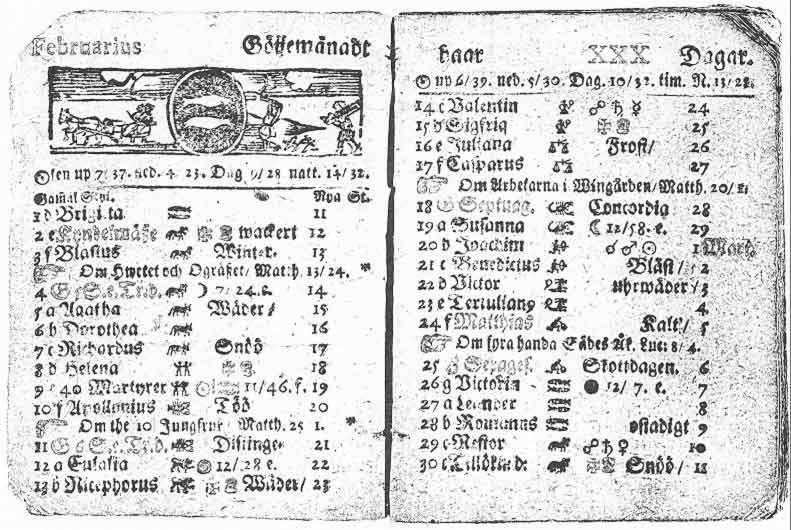 Februarius Göijemånadt
Solen up 7/37. ned. 4 23. Dag 9/28 natt. 14/32.
Gamal Styl. Nya St.
1 d Brigitta 11
2 e Kyndelmässe wackert 12
3 f Blasius Winter. 13
Om Hwetet och Ogräset/ Matth. 13/24.
4 G 5 S. e. Tr. d. 7/24. e. 14
5 a Agatha Wäder/ 15
6 b Dorothea 16
7 c Richardus Snöö 17
8 d Helena 18
9 e 40 Martyrer 11/46. f. 19
10 f Apollonius Töö 20
Om the 10 Jungfrur Matth. 25 1.
11 G 6 S. e. Tr. d. Distinget 21
12 a Eulalia 12/28 e. 22
13 b Nicephorus Wäder/ 23
haar XXX Dagar.
up 6/39. ned. 5/30. Dag. 10/32. tim. N. 13/28.
14 c Valentin ☍ ♄ ☿ 24
15 d Sigfrid 25
16 e Juliana Frost/ 26
17 f Casparus 27
Om Arbetarna i Wingården/ Matth. 20/1.
18 G Septuag. Concordia 28
19 a Susanna ☾ 12/58. e. 29
20 b Joachim ☌ ♂ ☉ 1 Mart.
21 c Benedictus Bläst/ 2
22 d Victor uhrwäder/ 3
23 e Tertulianq 4
24 f Matthias Kalt/ 5
Om fyra handa Sädes Åk. Luc. 8/4.
25 G Sexages. Skottdagen. 6
26 g Victorin ● 12/7. e. 7
27 a Leander 8
28 b Romanus ostadigt 9
29 c Nestor ☍ ♄ ♀ 10
30 c Tillökind: Snöö/ 11